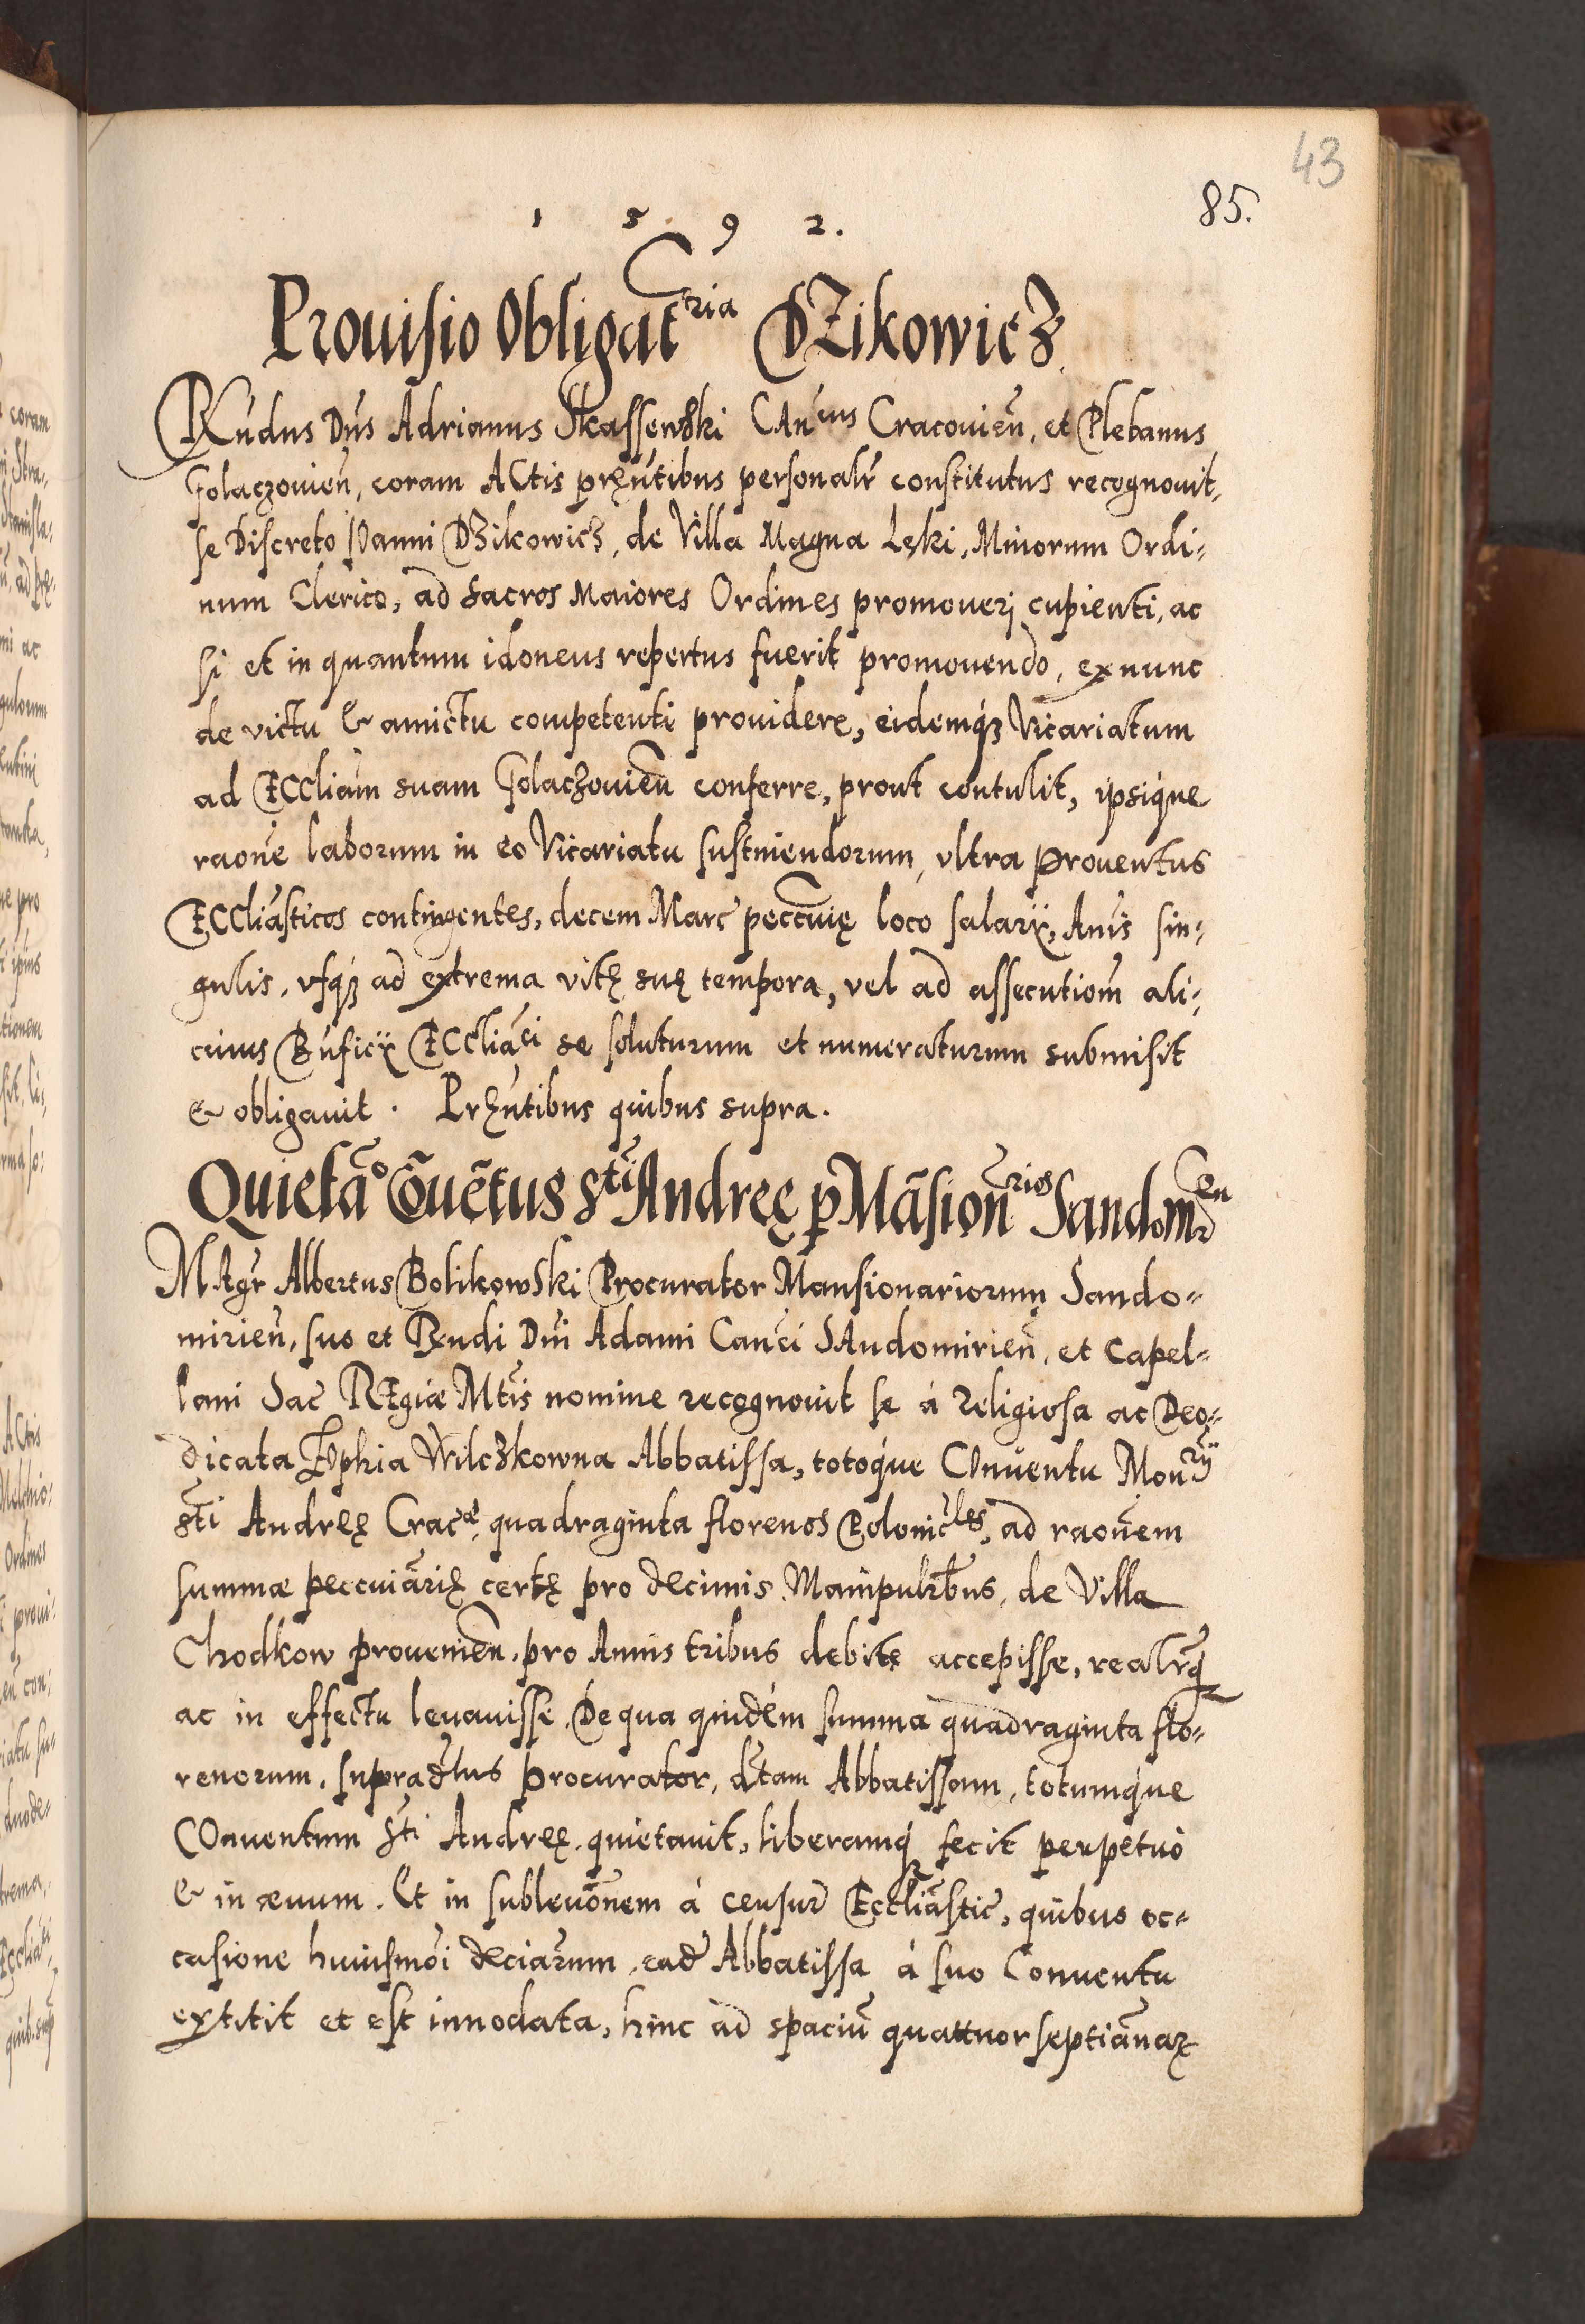 43
85.
1 5 9 2.
Prouisio Obligat^ria DZikowicz.
RNdus Dns Adrianus Skassewski CAn^cus Cracouien, et Plebanus
Golaczouien, coram ACtis pręntibus personalr constitutus recognouit,
se Discreto IOanni DZikowicz, de Villa Magna Lęki, Minorum Ordi-
num Clerico, ad sacros Maiores Ordines promoueri cupienti, ac
si et in quantum idoneus repertus fuerit promouendo, ex nunc
de victu & amictu competenti prouidere, eidemq3 Vicariatum
ad ECCliam suam Golaczouien conferre, prout contulit, ipsique
raone laborum in eo Vicariatu sustniendorum, vltra prouentus
ECCliasticos contingentes, decem Marc peccunię loco salarij, Anis sin-
gulis, vsq3 ad extrema vitę suę tempora, vel ad assecutiom ali-
cuius Bnficij ECClia^ci se soluturum et numeraturum submisit
& obligauit. Pręntibus quibus supra.
Quieta^o Cōuētus S^ti Andreę p Māsion^rios Sandomr^en
MAgr Albertus Bolikowski Procurator Mansionariorum Sando-
mirien, suo et Rndi Dni Adami Canci SAndomirien, et Capel-
lani Sac REgiæ Mtis nomine recognouit se á Religiosa ac Deo-
dicata Zophia Wilczkowna Abbatissa, totoque COnuentu Mon^rij
sti Andreę Crac^æ, quadraginta florenos Polonic^les, ad raonem
summæ peccuniarię certę pro decimis Manipulrbus, de Villa
Chodkow prouenien, pro Annis tribus debitę accepisse, realrq3
ac in effectu leuauisse. De qua quidem summa quadraginta flo-
renorum, supradctus procurator, dctam Abbatissam, totumque
COnuentum Sti Andreę quietauit, liberamq3 fecit perpetuo
& in æuum. Et in subleuonem á censur Eccliastic, quibus oc-
casione huiusmoi deciarum, ead Abbatissa á suo Conuentu
extitit et est innodata, hinc ad spaciu quattuor septianar